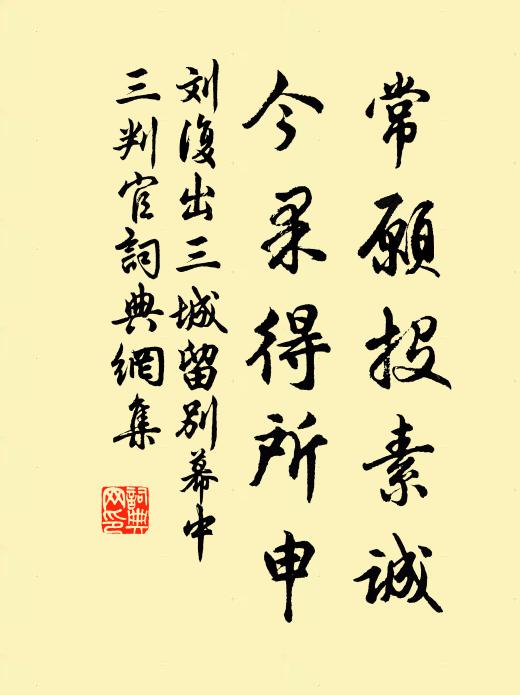 常願投素誠
今果得所申
刘復出三城留别幕中
三判官詞典網集
詞典
网印